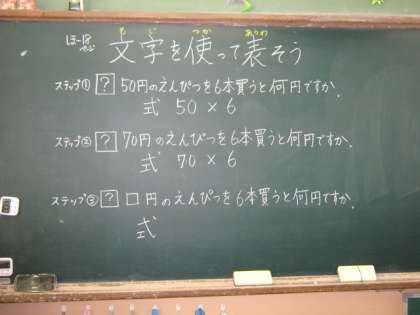 15~18ページ
文字を使って表そう
もじ つか あらわ
ステップ① ? 50円のえんぴつを6本買うと何円ですか.
式 50 × 6
ステップ② ? 70円のえんぴつを6本買うと何円ですか.
式 70 × 6
ステップ③ ? □円のえんぴつを6本買うと何円ですか.
式